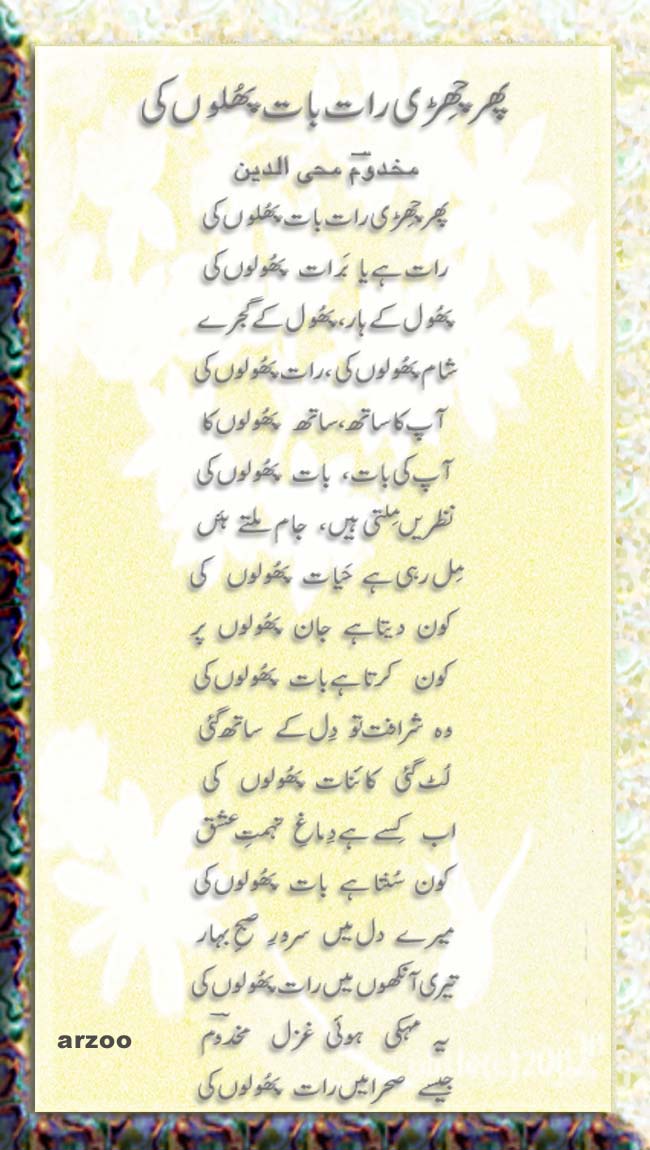 پھر چھِڑی رات بات پھُلوں کی
مخدومؔ محی الدین
پھر چھِڑی رات بات پھُلوں کی
رات ہے یا بَرات پھُولوں کی
پھُول کے ہار، پھُول کے گجرے
شام پھُولوں کی، رات پھُولوں کی
آپ کا ساتھ، ساتھ پھُولوں کا
آپ کی بات، بات پھُولوں کی
نظریں مِلتی ہیں، جام ملتے ہیں
مِل رہی ہے حَیات پھُولوں کی
کون دیتا ہے جان پھُولوں پر
کون کرتا ہے بات پھُولوں کی
وہ شرافت تو دِل کے ساتھ گئی
لُٹ گئی کائنات پھُولوں کی
اب کِسے ہے دِماغِ تہمتِ عشق
کون سُنتا ہے بات پھُولوں کی
میرے دل میں سرورِ صبحِ بہار
تیری آنکھوں میں رات پھُولوں کی
یہ مہکی ہوئی غزل مخدومؔ
جیسے صحرا میں رات پھُولوں کی
arzoo